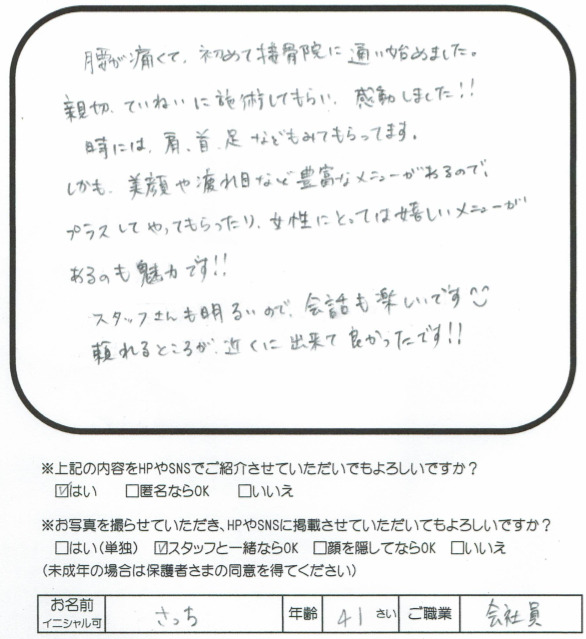 腰が痛くて、初めて接骨院に通い始めました。
親切、ていねいに施術してもらい、感動しました!!
時には、肩、首、足などもみてもらってます。
しかも、美顔や疲れ目など豊富なメニューがあるので、
プラスしてやってもらったり、女性にとっては嬉しいメニューが
あるのも魅力です!!
スタッフさんも明るいので、会話も楽しいです
頼れるところが、近くに出来て良かったです!!
※上記の内容をHPやSNSでご紹介させていただいでもよろしいですか?
☑はい □匿名ならOK □いいえ
※お写真を撮らせていただき、HPやSNSに掲載させていただいてもよろしいですか?
□はい(単独) ☑スタッフと一緒ならOK □顔を隠してならOK □いいえ
(未成年の場合は保護者さまの同意を得てください)
お名前 イニシャル可 さっち 年齢 41 さい ご職業 会社員